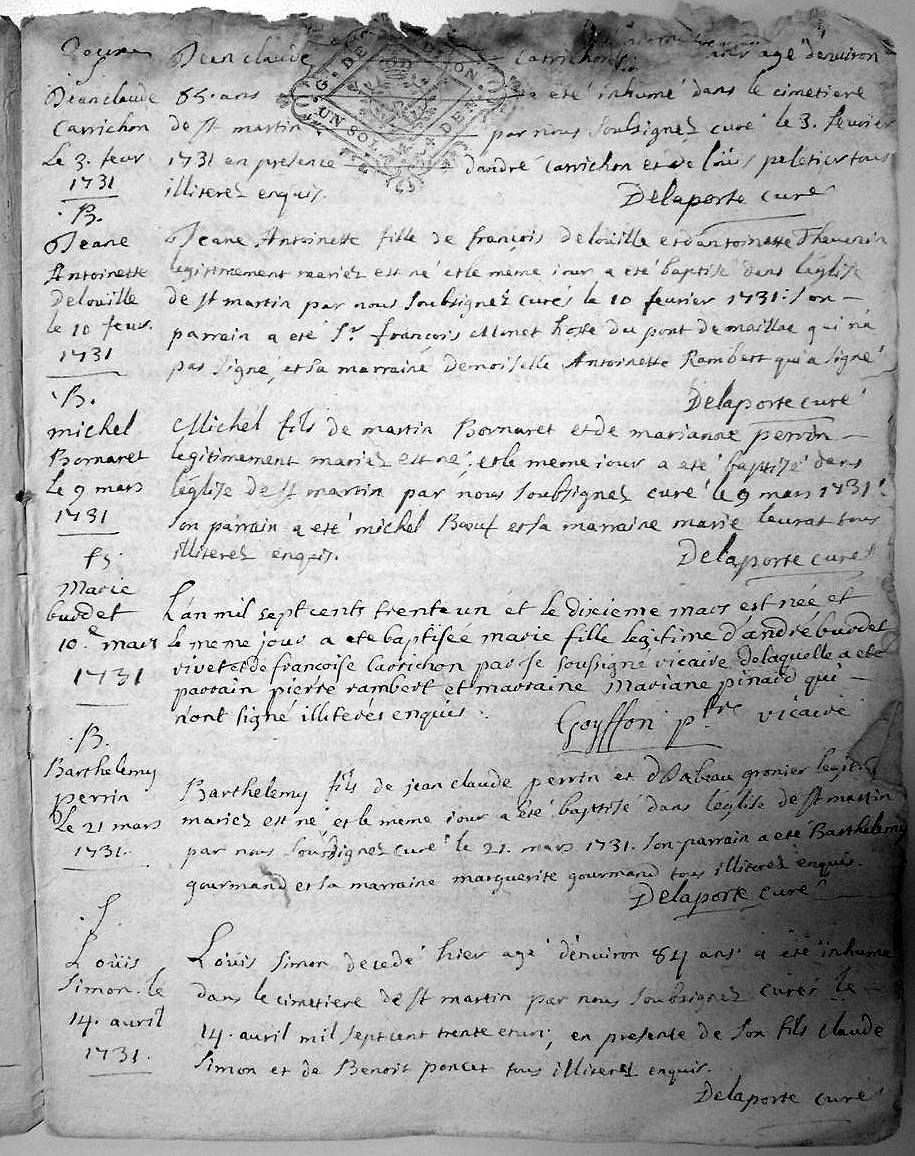 Jean claude Carrichon agé d'environ
S
Jean claude 65. ans a eté inhumé dans le cimetiere
Carrichon de st martin par nous soubsignez curé le 3. fevrier
Le 3. feur 1731 en presence d'andré Carrichon et de loüis peletier tous
1731 illiterez enquis.
Delaporte curé
G. DE
UN SOL
B.
Jeane Jeane Antoinette fille de françois delouille et d'antoinette Thevenin
Antoinette legitimement mariez est né et le meme iour a eté baptisé dans l'église
delouille de st martin par nous soubsignez curés le 10 fevrier 1731. son
le 10 feur. parrain a eté Sr. françois Monet hoste du pont de maillac qui n'a
1731 pas signé, et sa marraine demoiselle Antoinette Rambert qui a signé
Delaporte curé
B.
michel Michel fils de martin Bornaret et de marianne perrin
Bornaret legitimement mariez est né, et le meme iour a eté baptisé dans
Le 9 mars l'église de st martin par nous soubsignez curé le 9 mars 1731.
1731 son parrain a eté michel Bœuf et sa marraine marie laurat tous
illiterez enquis.
Delaporte curé
Marie
burdet L'an mil sept cents trente un et le dixieme mars est née et
10.e mars le meme jour a ete baptisée marie fille legitime d'andré burdet
1731 vivet et de françoise Carrichon par je soussigné vicaire de laquelle a eté
parrain pierre rambert et marraine Mariane pinard qui
n'ont signé illiterés enquis.
Goyffon ptre vicaire
B.
Barthelemy Barthelemy fils de jean claude perrin et d'Isabeau gronier legit.
perrin mariez est né et le meme iour a eté baptisé dans l'église de st martin
Le 21 mars par nous soubsignez curé le 21. mars 1731. son parrain a eté Barthelemy
1731. gourmand et sa marraine marguerite gourmand tous illiterez enquis.
Delaporte curé
S
Loüis Loüis simon decedé hier agé d'environ 84 ans a eté inhumé
simon. le dans le cimetiere de st martin par nous soubsignez curés le
14. avril 14. avril mil sept cent trente et un, en presente de son fils claude
1731. simon et de Benoit poncet tous illiterez enquis.
Delaporte curé